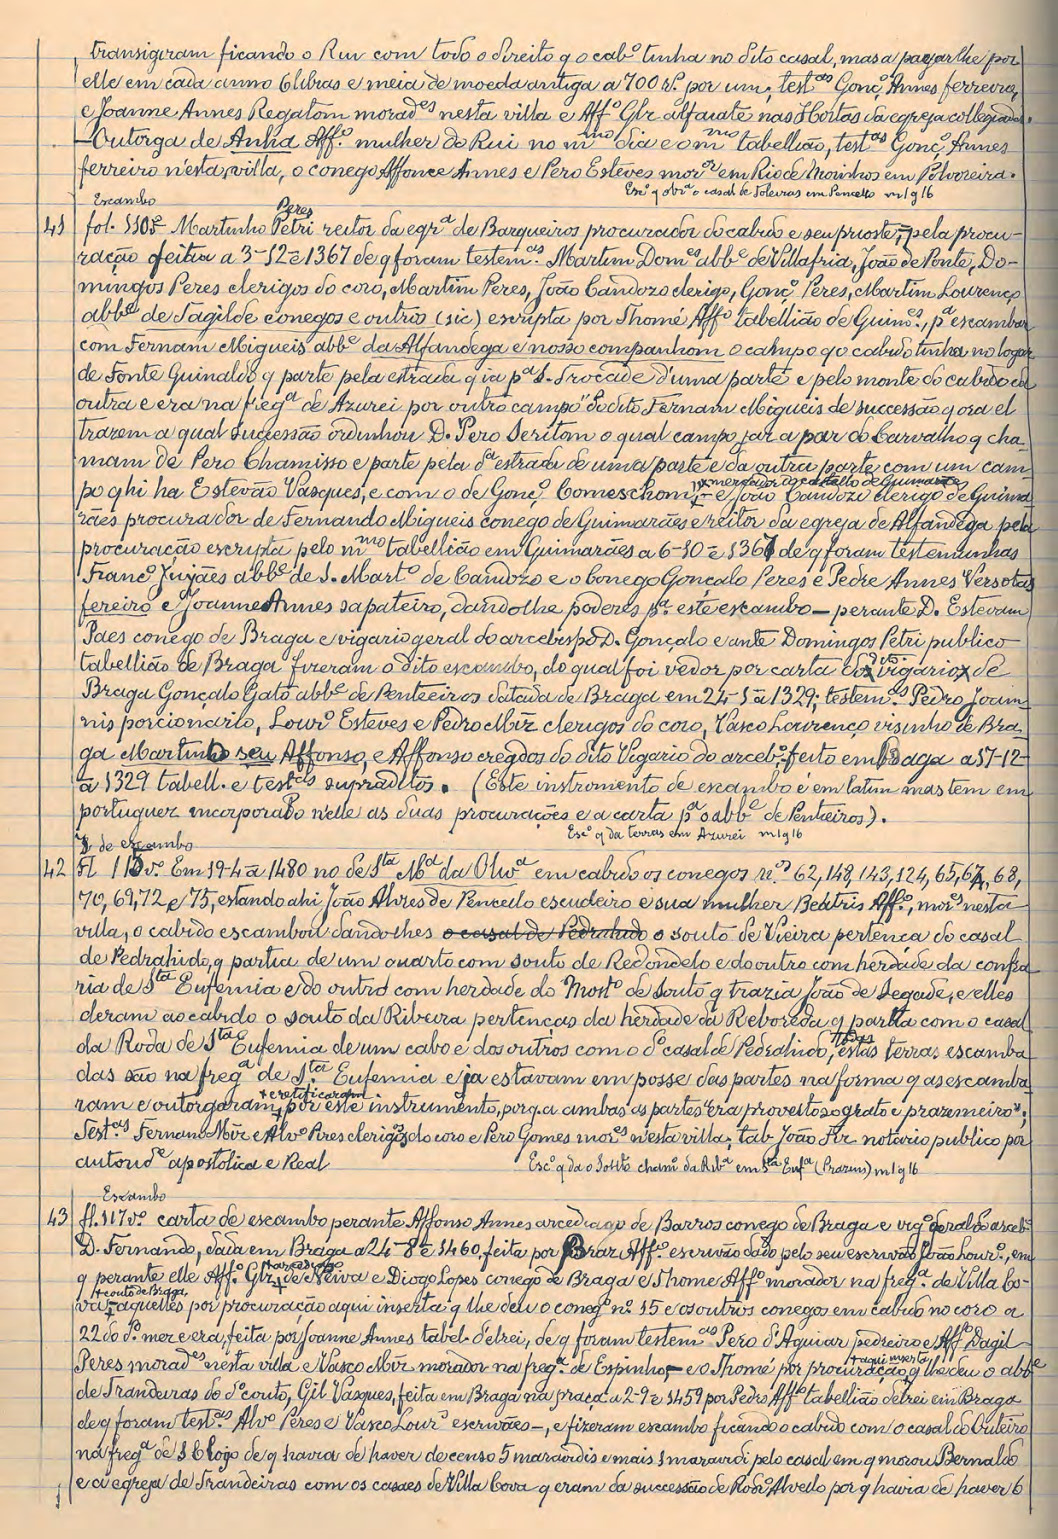 transigiram ficando o Rui com todo o direito q o cabº tinha no dito casal, mas a pagarlhe por
elle em cada anno 6 libras e meia de moeda antiga a 700 rs. por um; testas Gonçº Annes ferreiro,
e Joanne Annes Regatom moradores nesta villa e Affº Glz alfaiate nas Hortas da egreja collegiada.
— Outorga de Anna Affº mulher do Rui no mmo dia e o mmo tabellião, testas Gonçº Annes
ferreiro n'esta villa, o conego Affonce Annes e Pero Esteves mores em Rio de Moinhos em Polvoreira.
Escº q obra o casal de Toleiras em Pencello m 1 g 16
Escambo
41 fol. 110vº Martinho Petri Peres reitor da egrª de Barqueiros procurador do cabido e seu prioste, pela procu-
ração feita a 3-12 ē 1367 de q foram testems. Martim Domes abbe de Villafria, João de Ponte, Do-
mingos Peres clerigos do coro, Martim Peres, João Candozo clerigo, Gonçº Peres, Martim Lourenço
abbe de Tagilde conegos e outros (sic) escripta por Thomé Affº tabellião de Guimes, pª escambar
com Fernam Migueis abbe da Alfandega e nosso companhom o campo q o cabido tinha no logar
de Fonte Guinaldo q parte pela estrada q ia pª S. Trocade d'uma parte e pelo monte do cabido da
outra e era na fregª de Azurei por outro campo do dito Fernam Migueis de successão q ora el
trazem a qual sucessão ordinhou D. Pero Seritom o qual campo jar a par do Carvalho q cha-
mam de Pero Chamisso e parte pela dª estrada de uma parte e da outra parte com um cam-
po q hi ha Estevão Vasques, e com o de Gonçº Comeschom, x mercador do castello de Guimarães — e João Candozo clerigo de Guima-
rães procurador de Fernando Migueis conego de Guimarães e reitor da egreja de Alfandega pela
procuração escripta pelo mmo tabellião em Guimarães a 6-10 ē 1367 de q foram testemunhas
Francº Jujães abbe de S. Martº de Candozo e o Conego Gonçalo Peres e Pedre Annes Versotas
fereiro e Joanne Annes sapateiro, dandolhe poderes pª este escambo — perante D. Estevam
Paes conego de Braga e vigario geral do arcebispo D. Gonçalo e ante Domingos Petri publico
tabellião de Braga fizeram o dito escambo, do qual foi vedor por carta do vigario de
Braga Gonçalo Gato abbe de Penteeiros datada de Braga em 24-1 ā 1329; testems Pedro Joan-
nis porcionario, Lourº Esteves e Pedro Miz clerigos do coro, Vasco Lourenço visinho de Bra-
ga Martinho seu Affonso, e Affonso cregdos do dito Vigario do arceb. feito em Braga a 17-12
ā 1329 tabell. e testas supraditos. (Este instromento de escambo é em latim mas tem em
portuguez incorporado n'elle as duas procurações e a carta pª o abbe de Penteiros).
Escº q da terras em Azurei m 1 g 16
de escambo
42 fl 115vº. Em 19-4 ā 1480 no de Sta Mª da Olivª em cabido os conegos nos 62, 148, 143, 124, 65, 67, 68,
70, 69, 72 e 75, estando ahi João Alvres de Pencello escudeiro e sua mulher Beatris Affº, mores nesta
villa, o cabido escambou dandolhes o casal de Pedralido o souto de Vieira pertença do casal
de Pedralido, q partia de um quarto com souto de Redondelo e do outro com herdade da confra-
ria de Sta Eufemia e do outro com herdade do Mostº de Souto q trazia João de Segade, e elles
deram ao cabido o souto da Ribeira pertenças da herdade da Reboreda q partia com o casal
da Roda de Sta Eufemia de um cabo e dos outros com o dº casal de Pedralido, todas estas terras escamba-
das são na fregª de Sta Eufemia e ja estavam em posse das partes na forma q as escamba-
ram e outorgaram, + e retificaram por este instrumento, porq. a ambas as partes era proveitoso grato e prazemeiro;
Testas Fernam Miz e Alvº Pires clerigos do coro e Pero Gomes mores n'esta villa; tab João Fr notario publico por
autoride apostolica e Real
Escº q da o Souto chamº da Ribª em Sta Eufª (Prazins) m 1 g 16
Escambo
43 fl. 117vº carta de escambo perante Affonso Annes arcediago de Barros conego de Braga e vigº geral do arceb.
D. Fernando, dada em Braga a 24-8 ē 1460, feita por Braz Affº escrivão dado pelo seu escrivão João Lourº, em
q perante elle Affº Glz + arcediago de Neiva e Diogo Lopes conego de Braga e Thome Affº morador na fregª de Villa Co-
va + couto de Braga, aquelles por procuração aqui inserta q lhe deu o conego nº 15 e os outros conegos em cabido no coro a
22 do dº mez e era, feita por Joanne Annes tabel. d'elrei, de q foram testemas Pero d'Aguiar pedreiro e Affº Dagil
Peres morades nesta villa e Vasco Miz morador na fregª de Espinho, — e o Thomé por procuração + aqui inserta q lhe deu o abbe
de Trandeiras do dº couto, Gil Vasques, feita em Braga na praça a 2-9 ē 1459 por Pedro Affº tabellião delrei em Braga
de q foram testas. Alvº Peres e Vasco Lourº escrivães —, e fizeram escambo ficando o cabido com o casal do Outeiro
na fregª de S Cloyo de q havia de haver de censo 5 maravidis e mais 1 maravidi pelo casal em q morou Bernaldo
e a egreja de Trandeiras com os casaes de Villa Cova q eram da successão de Rodrº Alvello por q havia de haver 6